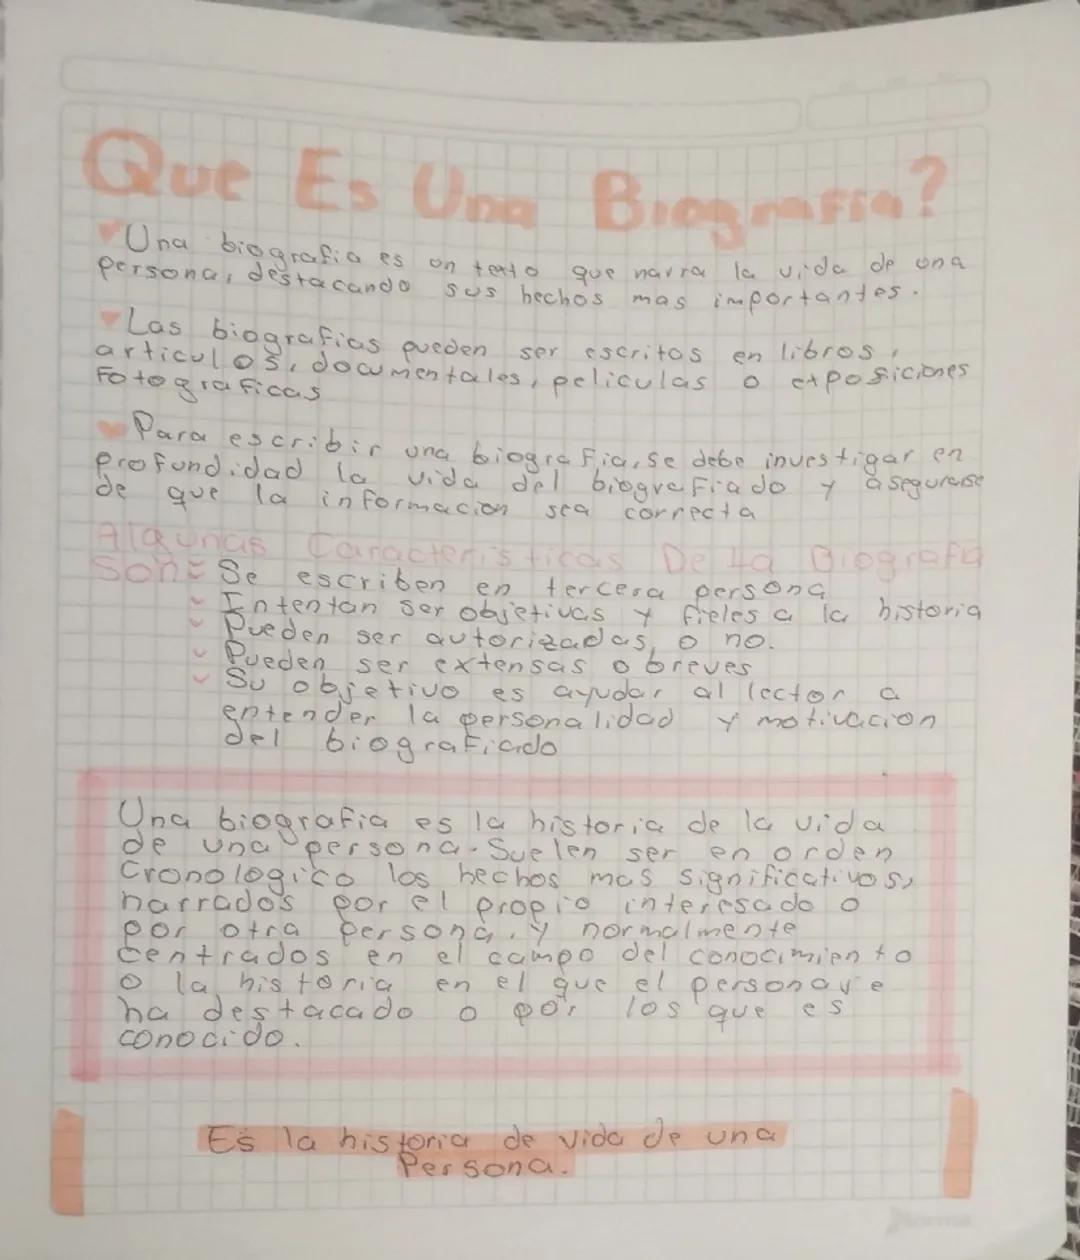 Que Es Una Biografia?
Una biografia es un texto que narra la vida de una
persona, destacando sus hechos mas importantes.
Las biografias pueden ser escritas en libros,
articulos, documentales, peliculas o exposiciones
Fotograficas
Para escribir una biografia, se debe investigar en
profundidad la vida del biografiado y asegurarse
de que la informacion sea correcta
Algunas Caracteristicas De La Biografia
Son: Se escriben en tercera persona
Intentan ser objetivas y fieles a la historia
Pueden ser autorizadas o no.
Pueden ser extensas o breves
Su objetivo es ayudar al lector a
entender la personalidad y motivacion
del biografiado
Una biografia es la historia de la vida
de una persona. Suelen ser en orden
Cronologico los hechos mas significativos,
narrados por el propio interesado o
por otra persona, y normalmente
Centrados en el campo del conocimiento
o la historia en el que el personaje
ha destacado o por los que es
conocido.
Es la historia de vida de una
Persona.
Norma